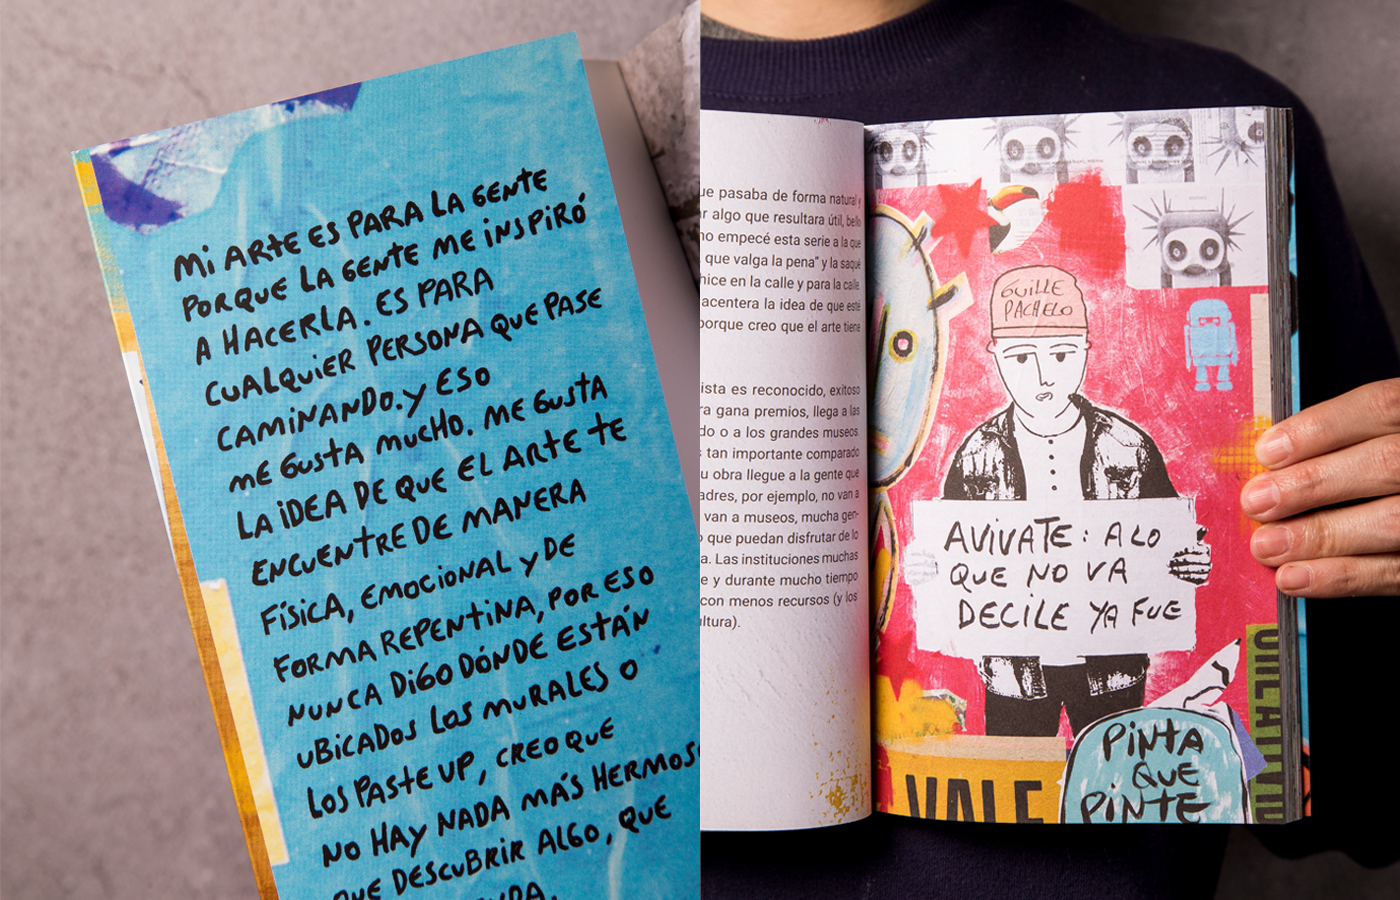 Mi ARTE ES PARA LA GENTE
PORQUE LA GENTE ME INSPIRÓ
A HACERLA. ES PARA
CUALQUIER PERSONA QUE PASE
CAMINANDO. Y ESO
ME GUSTA MUCHO. ME GUSTA
LA IDEA DE QUE EL ARTE TE
ENCUENTRE DE MANERA
FÍSICA, EMOCIONAL Y DE
FORMA REPENTINA, POR ESO
NUNCA DIGO DÓNDE ESTÁN
UBICADOS LOS MURALES O
LOS PASTE UP, CREO QUE
NO HAY NADA MÁS HERMOS
QUE DESCUBRIR ALGO, QUE
ue pasaba de forma natural y
r algo que resultara útil, bello
no empecé esta serie a la que
que valga la pena” y la saqué
hice en la calle y para la calle
acentera la idea de que esté
porque creo que el arte tiene
ista es reconocido, exitoso
ra gana premios, llega a las
do o a los grandes museos.
s tan importante comparado
u obra llegue a la gente que
adres, por ejemplo, no van a
van a museos, mucha gen-
o que puedan disfrutar de lo
a. Las instituciones muchas
e y durante mucho tiempo
con menos recursos (y los
ultura).
GUILLE
PACHELO
AVIVATE: A LO
QUE NO VA
DECILE YA FUE
VALE
PINTA
QUE
PINTE